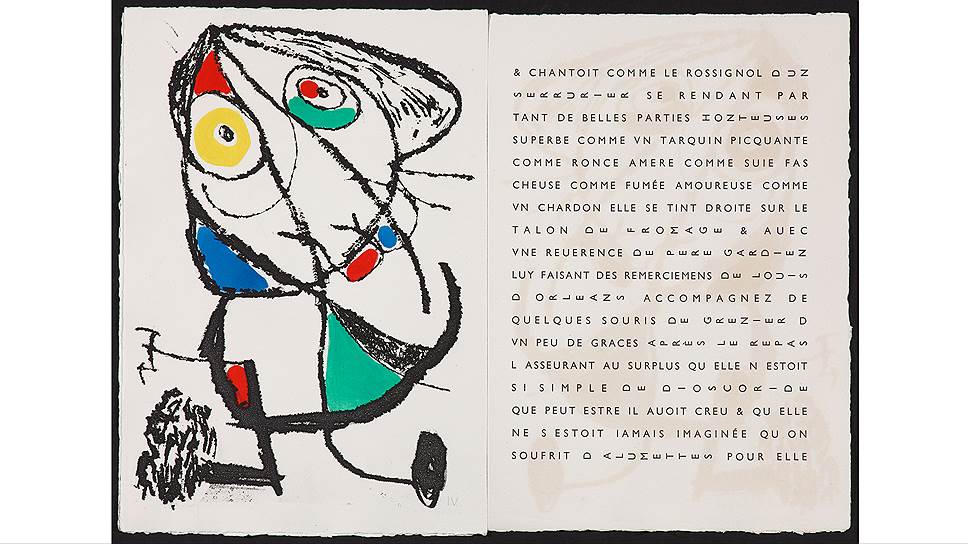 & CHANTOIT COMME LE ROSSIGNOL DUN
SERRURIER SE RENDANT PAR
TANT DE BELLES PARTIES HONTEUSES
SUPERBE COMME VN TARQUIN PICQUANTE
COMME RONCE AMERE COMME SUIE FAS
CHEUSE COMME FUMÉE AMOUREUSE COMME
VN CHARDON ELLE SE TINT DROITE SUR LE
TALON DE FROMAGE & AUEC
VNE REUERENCE DE PERE GARDIEN
LUY FAISANT DES REMERCIEMENS DE LOUIS
D ORLEANS ACCOMPAGNEZ DE
QUELQUES SOURIS DE GRENIER D
VN PEU DE GRACES APRÈS LE REPAS
L ASSEURANT AU SURPLUS QU ELLE N ESTOIT
SI SIMPLE DE DIOSCORIDE
QUE PEUT ESTRE IL AUOIT CREU & QU ELLE
NE S ESTOIT IAMAIS IMAGINÉE QU ON
SOUFRIT D ALUMETTES POUR ELLE
IV